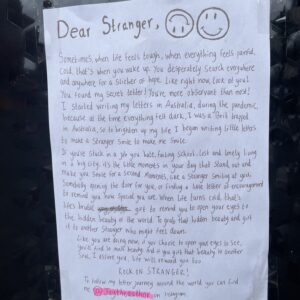 Dear Stranger,
Sometimes, when life feels tough, when everything feels painful,
cold, that's when you wake up. You desperately search everywhere
and anywhere for a slither of hope. Like right now, look at you!
You found my secret letter! You're more observant than most!
I started writing my letters in Australia, during the pandemic,
because at the time everything felt dark, I was a trapped
in Australia, so to brighten up my life I began writing little letters
to make a Stranger Smile to make me Smile.
If you're stuck in a job you hate, failing school, lost and lonely living
in a big city, it's the little moments in your day that Stand out and
make you Smile for a Second. Moments, like a Stranger smiling at you,
Somebody opening the door for you, or finding a little letter of encouragement
or remind you how Special you are. When life turns cold, that's
life's brutal way to remind you to open your eyes to
the hidden beauty of the world. To grab that hidden beauty and give
it to another Stranger who might feel down.
Like you are doing now, if you choose to open your eyes to see,
you'll find so much beauty. And if you gift that beauty to another
Soul, I assure you, life will reward you too.
ROCK ON STRANGER!
To follow my letter journey around the world you can find
me on Instagram.